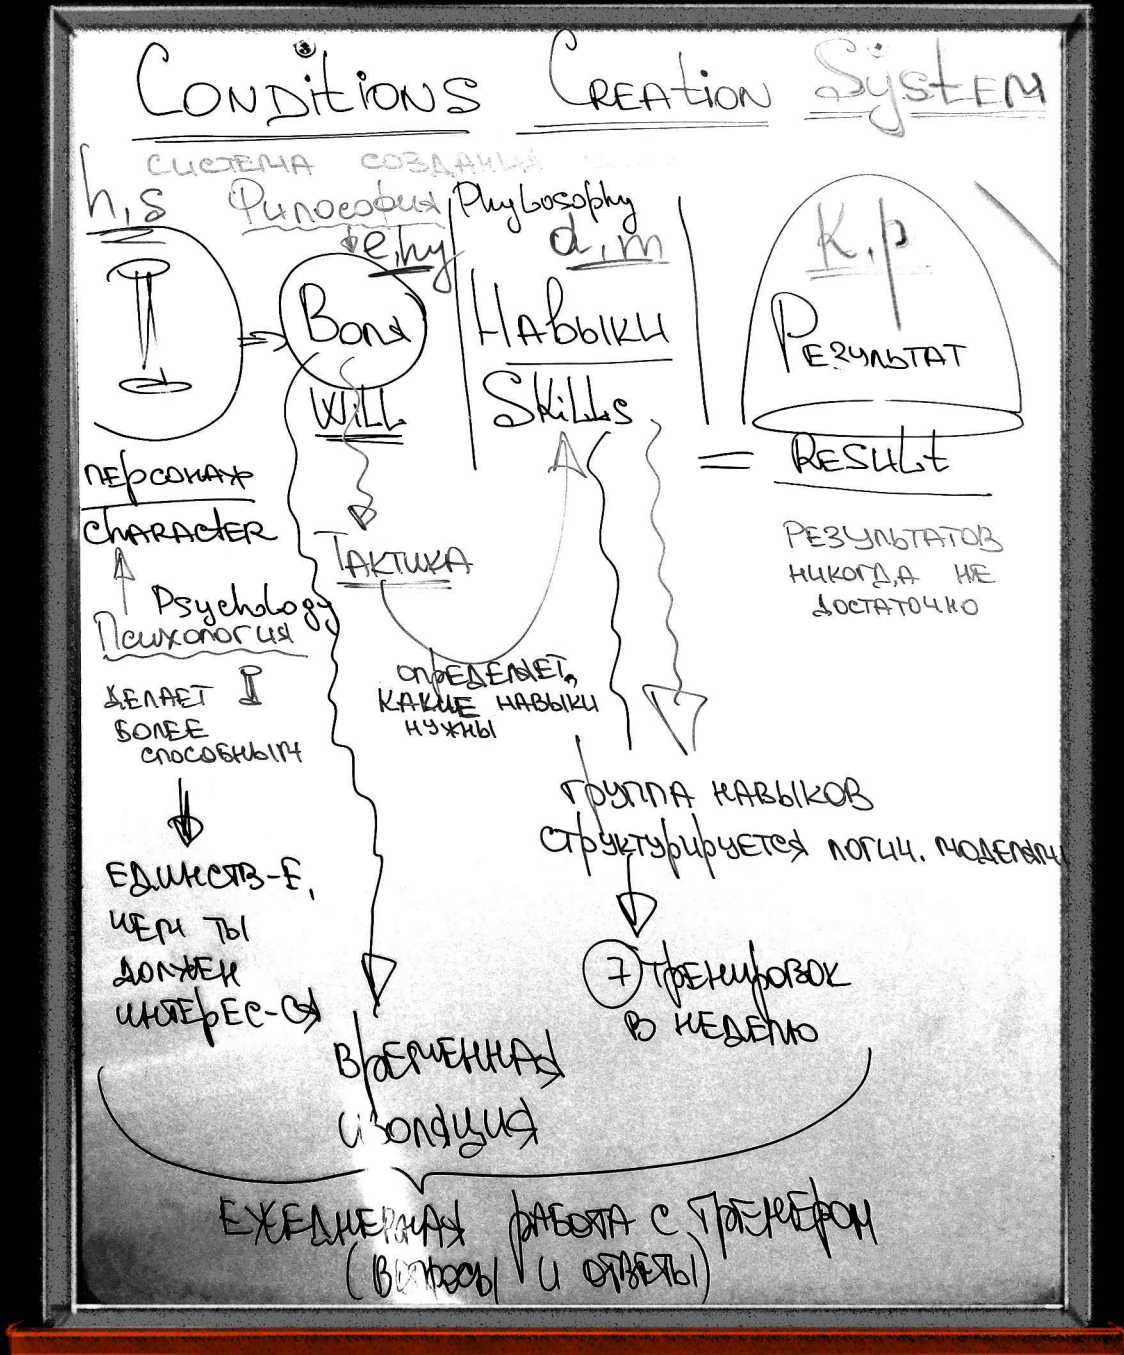 Conditions Creation System
система создания
h, s
Философия
Phylosophy
e, hy
d, m
K, p
Воля
Навыки
Результат
Will
Skills
= Result
персонаж
character
Результатов
никогда не
достаточно
Тактика
Psychology
Психология
делает
более
способным
определяет,
какие навыки
нужны
группа навыков
структурируется логич. моделями
единств-е,
чем ты
должен
интерес-ся
7 тренировок
в неделю
временная
изоляция
ежедневная работа с тренером
(вопросы и ответы)